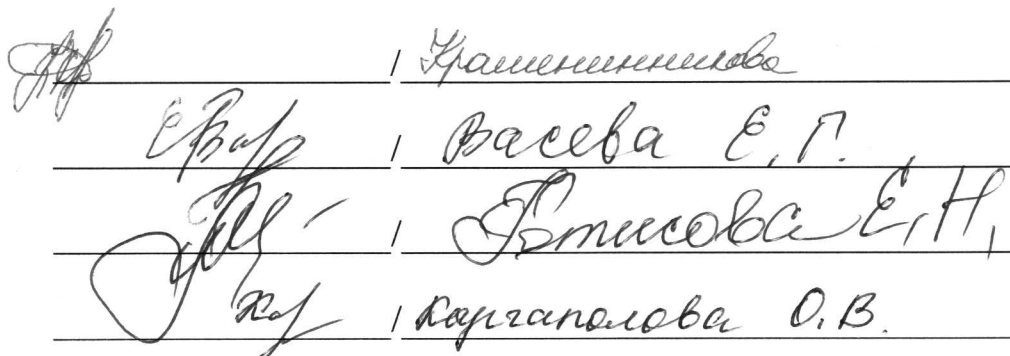 / Крашенинникова
/ Васева Е.Г.,
/ Е.Н.
/ Каргаполова О.В.